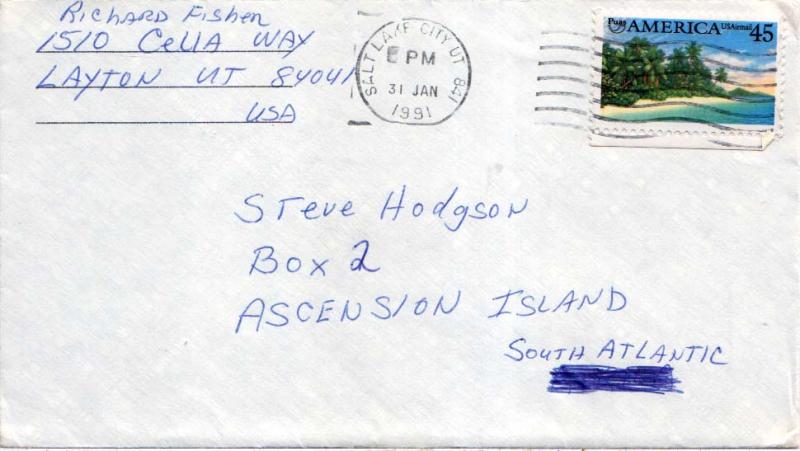 Richard Fisher
1510 Cella Way
Layton UT 84041
USA
SALT LAKE CITY UT 841
PM
31 JAN
1991
Puas AMERICA USAirmail 45
Steve Hodgson
Box 2
ASCENSION ISLAND
SOUTH ATLANTIC